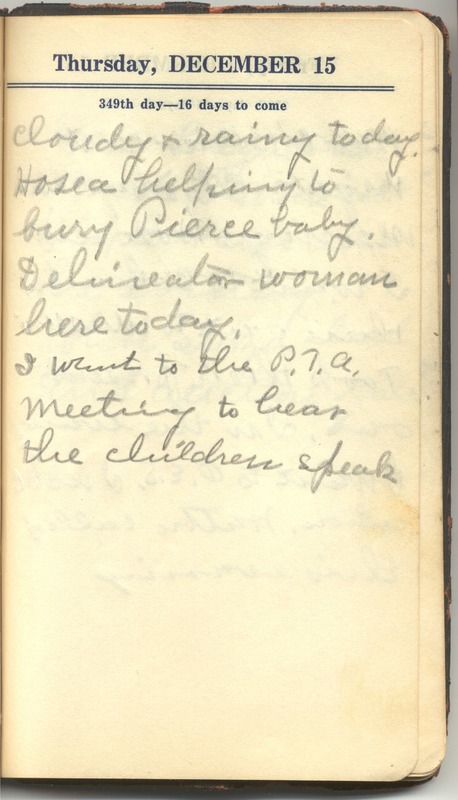 Thursday, DECEMBER 15
349th day—16 days to come
cloudy & rainy today.
Hosea helping to
bury Pierce baby.
Delineator woman
here today.
I went to the P.T.A.
Meeting to hear
the children speak